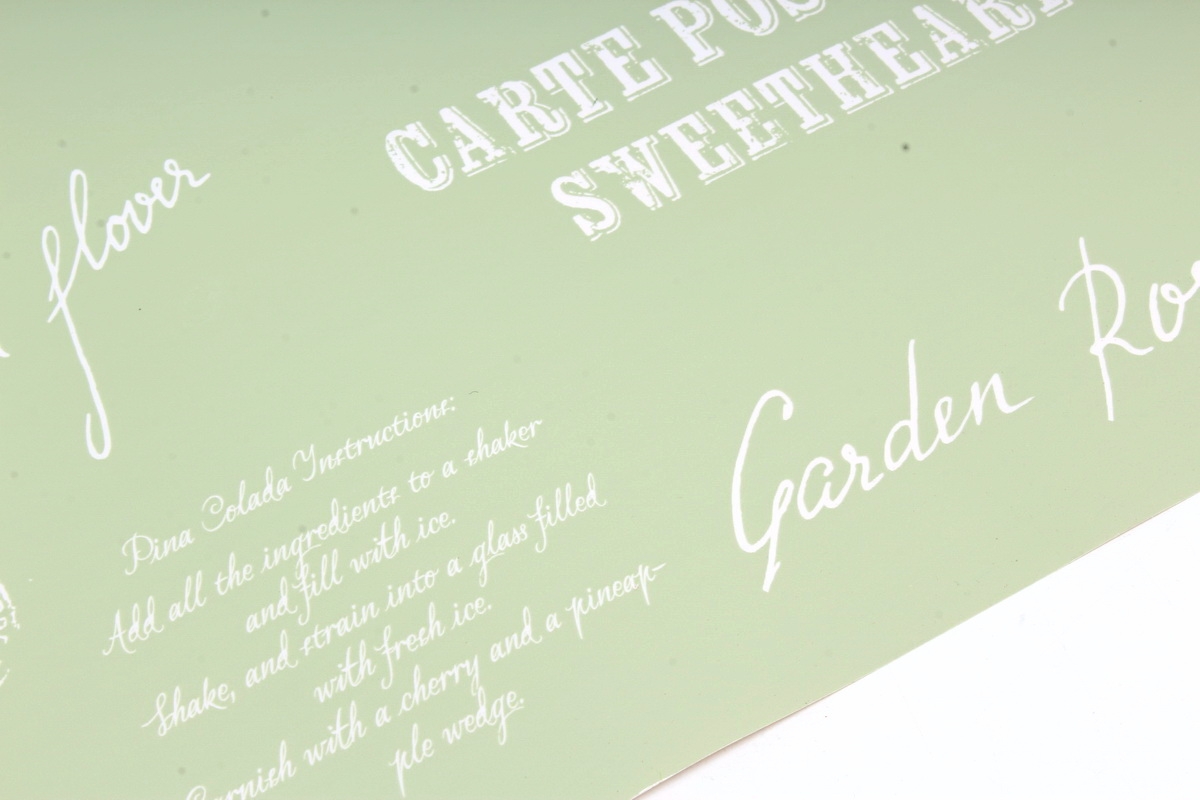 CARTE
SWEETHEART
flover
Garden
Pina Colada Instructions:
Add all the ingredients to a shaker
and fill with ice.
Shake, and strain into a glass filled
with fresh ice.
Garnish with a cherry and a pineap-
ple wedge.